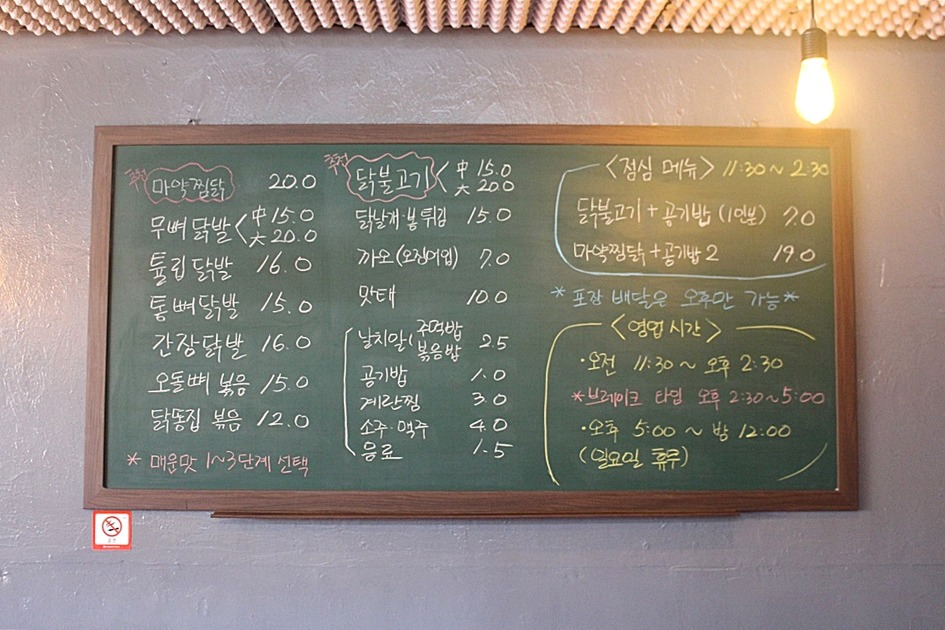 추천 마약찜닭 20.0
무뼈 닭발 < 中 15.0
大 20.0
튤립 닭발 16.0
통뼈닭발 15.0
간장닭발 16.0
오돌뼈 볶음 15.0
닭똥집 볶음 12.0
* 매운맛 1~3단계 선택
추천 닭불고기 < 中 15.0
大 20.0
닭날개·봉튀김 15.0
까오(오징어입) 7.0
맛태 10.0
날치알( 주먹밥
볶음밥 2.5
공기밥 1.0
계란찜 3.0
소주·맥주 4.0
음료 1.5
<점심 메뉴> 11:30 ~ 2:30
닭불고기 + 공기밥 (1인분) 7.0
마약찜닭 + 공기밥 2 19.0
* 포장 배달은 오후만 가능 *
<영업 시간>
· 오전 11:30 ~ 오후 2:30
*브레이크 타임 오후 2:30~5:00
· 오후 5:00 ~ 밤 12:00
(일요일 휴무)